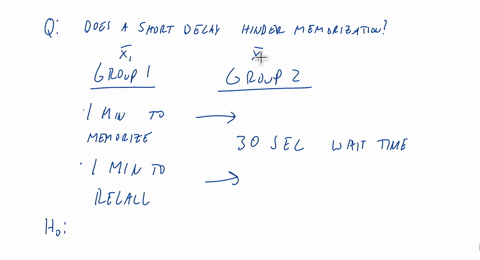 Q: DOES A SHORT DELAY HINDER MEMORIZATION?
X̄₁ X̄
GROUP 1 GROUP 2
· 1 MIN TO MEMORIZE →
30 SEC WAIT TIME
· 1 MIN TO RECALL →
H₀: